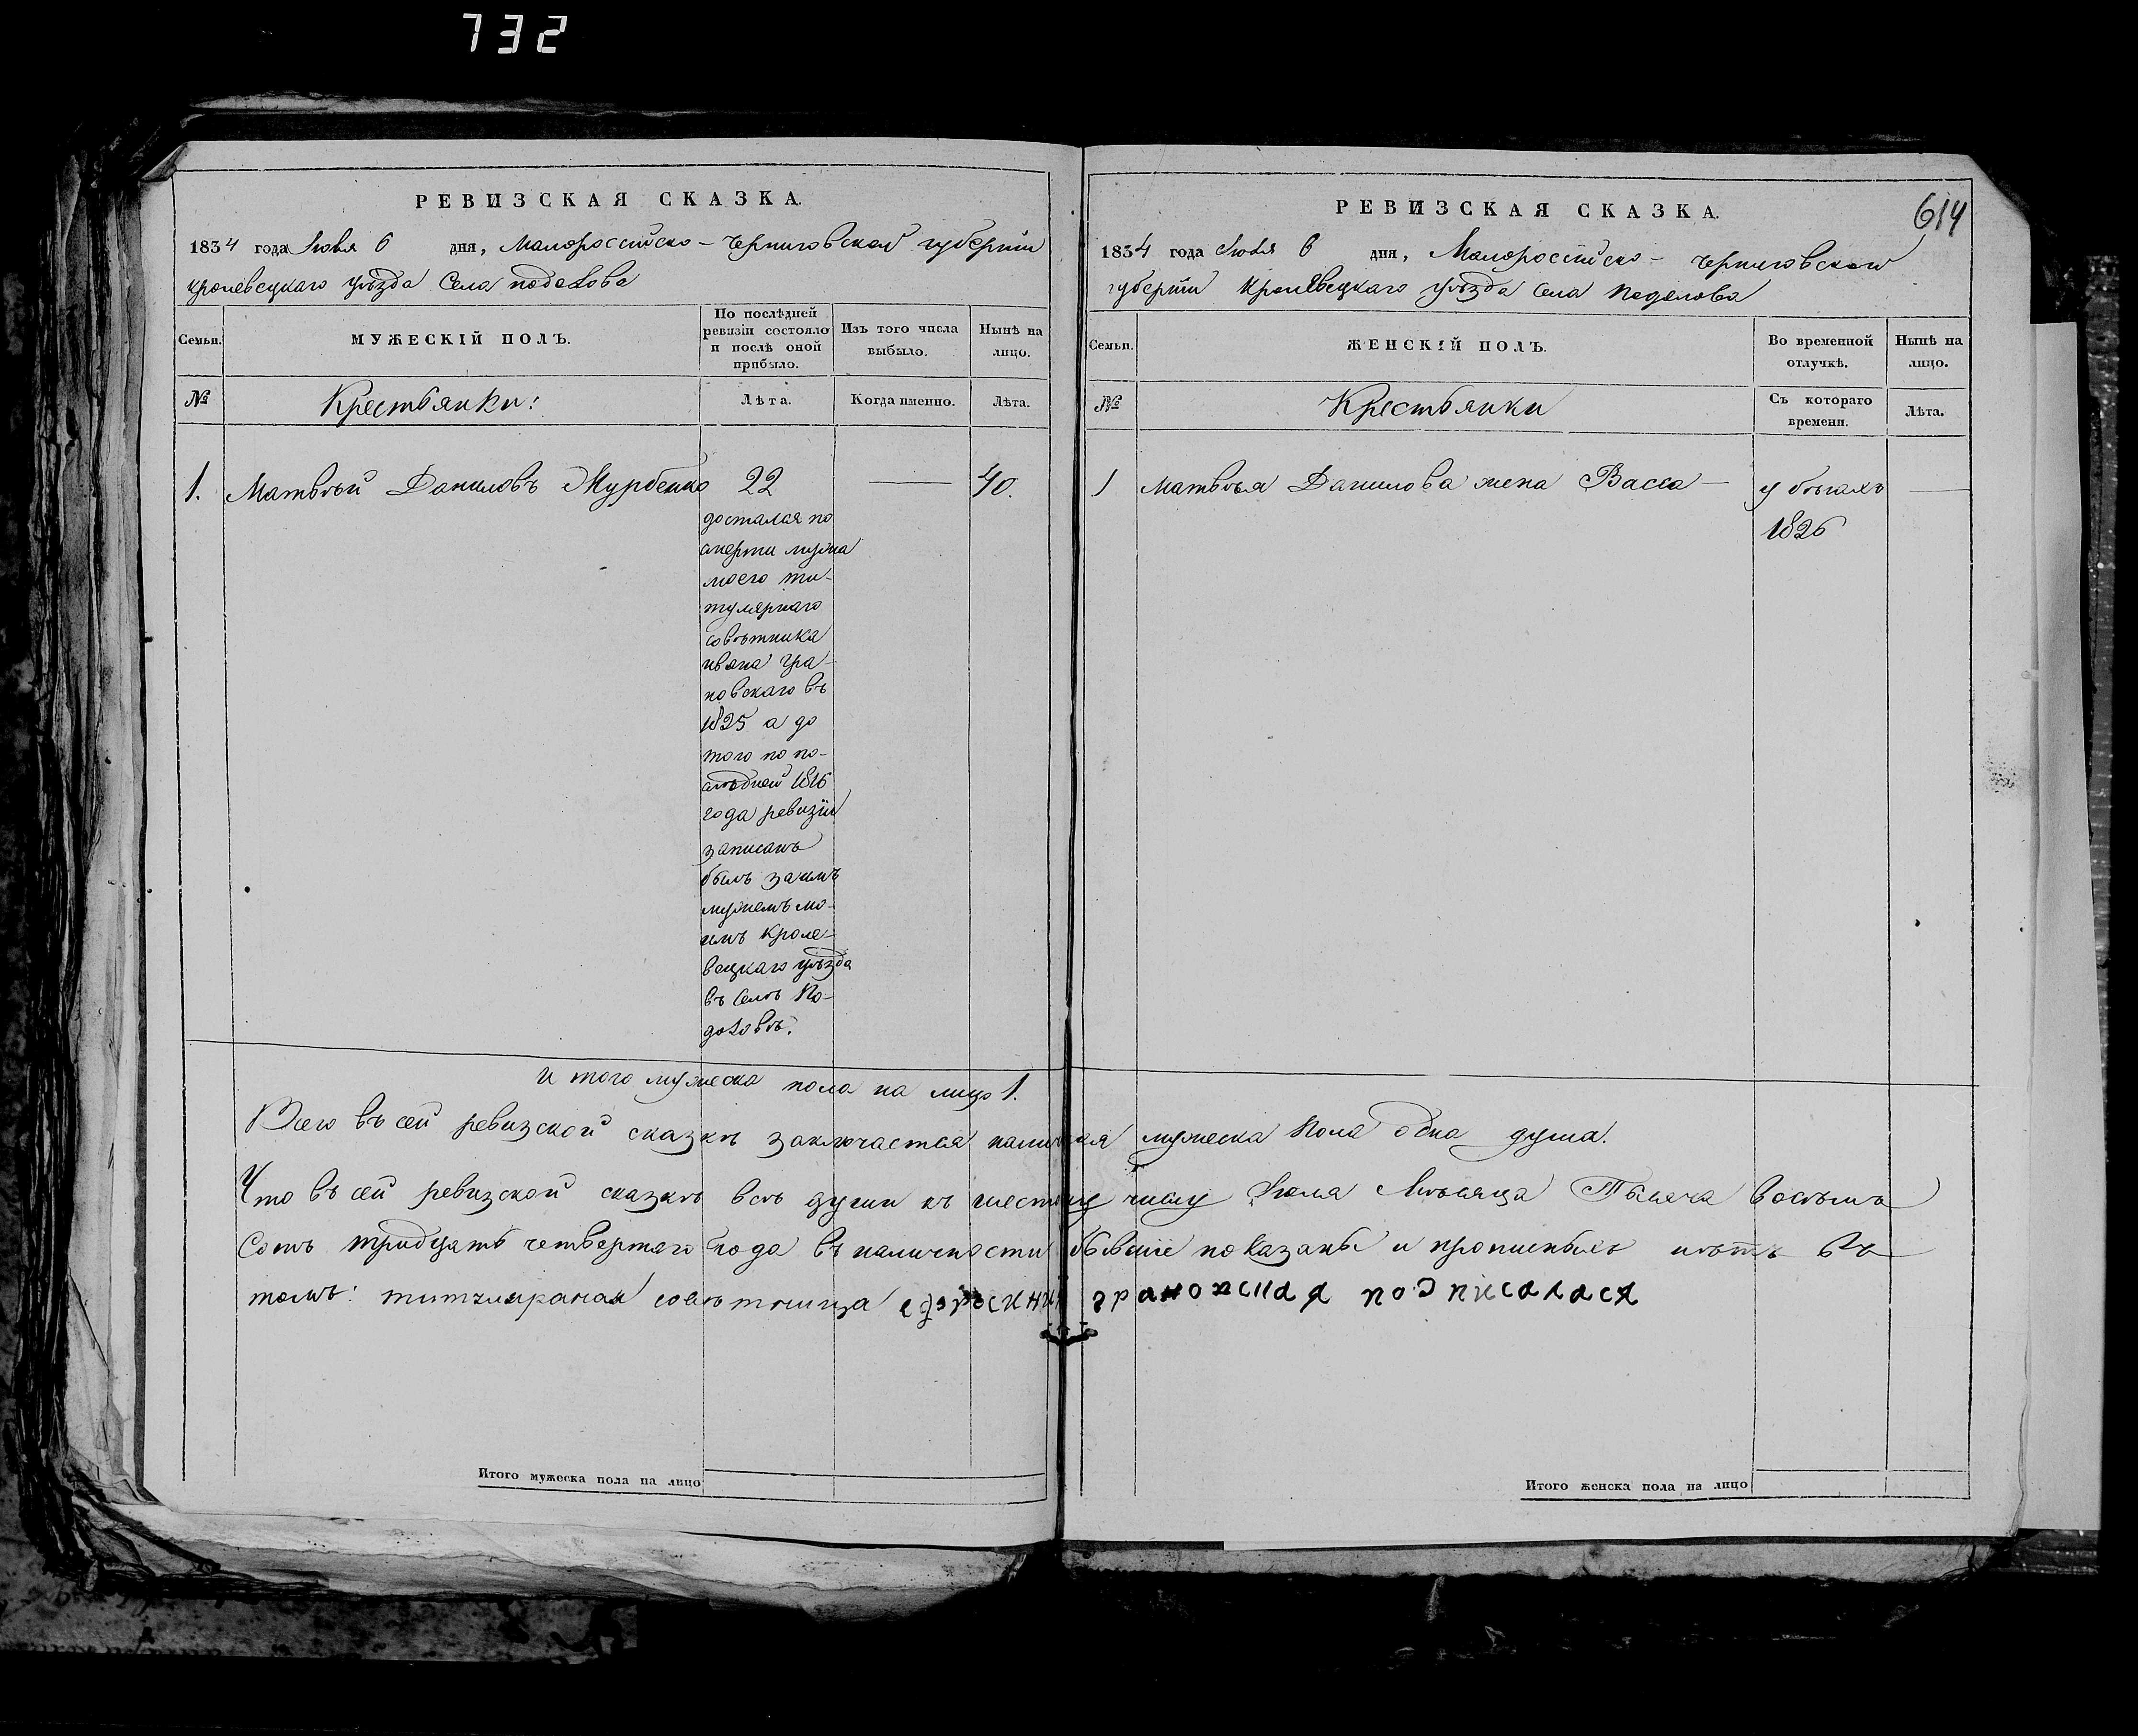 732
РЕВИЗСКАЯ СКАЗКА.
1834 года Июля 6 дня, Малороссійско-Черниговской губерніи
кролевецкаго уѣзда Села подолова
Семьи.
МУЖЕСКІЙ ПОЛЪ.
По послѣдней ревизіи состояло и послѣ оной прибыло.
Изъ того числа выбыло.
Нынѣ на лицо.
№
Крестьянки:
Лѣта.
Когда именно.
Лѣта.
1. Матвѣй Даниловъ 22 — 40.
досталая по
смерти мужа
моего ти-
тулярнаго
совѣтника
ивана Гра-
новскаго въ
1825 а до
того по по-
слѣдней 1816
года ревизіи
записанъ
былъ заимъ
мужемъ мо-
имъ Кроле-
вецкаго уѣзда
въ Селѣ По-
доловѣ.
и того мужеска пола на лицо 1.
614
РЕВИЗСКАЯ СКАЗКА.
1834 года Июля 6 дня, Малороссійско-Черниговской
губерніи Кролевецкаго уѣзда Села Подолова
Семьи.
ЖЕНСКІЙ ПОЛЪ.
Во временной отлучкѣ.
Нынѣ на лицо.
№
Крестьянки
Съ котораго времени.
Лѣта.
1 Матвѣя Данилова жена Васса — у бѣгахъ —
1826
Всего въ сей ревизской сказкѣ заключается наличная мужеска Пола одна душа.
Что въ сей ревизской сказкѣ всѣ души къ шестому числу Июля Мѣсяца Тысяча восѣмъ
Сотъ тридцать четвертаго года въ наличности бывшіе показаны и прописныхъ нѣтъ въ
томъ: совѣтница грановская подписалася
Итого мужеска пола на лицо
Итого женска пола на лицо